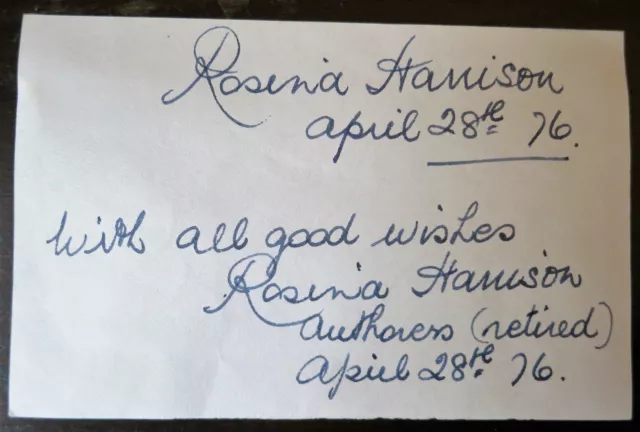 Rosina Harrison
April 28th 76.
With all good wishes
Rosina Harrison
Authoress (retired)
April 28th 76.